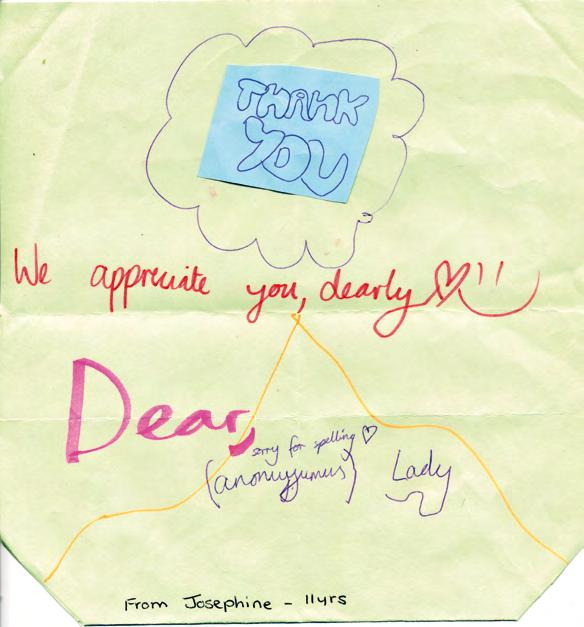 THANK
YOU
We appreciate you, dearly
Dear,
sorry for spelling
(anonuyumus) Lady
From Josephine - 11yrs